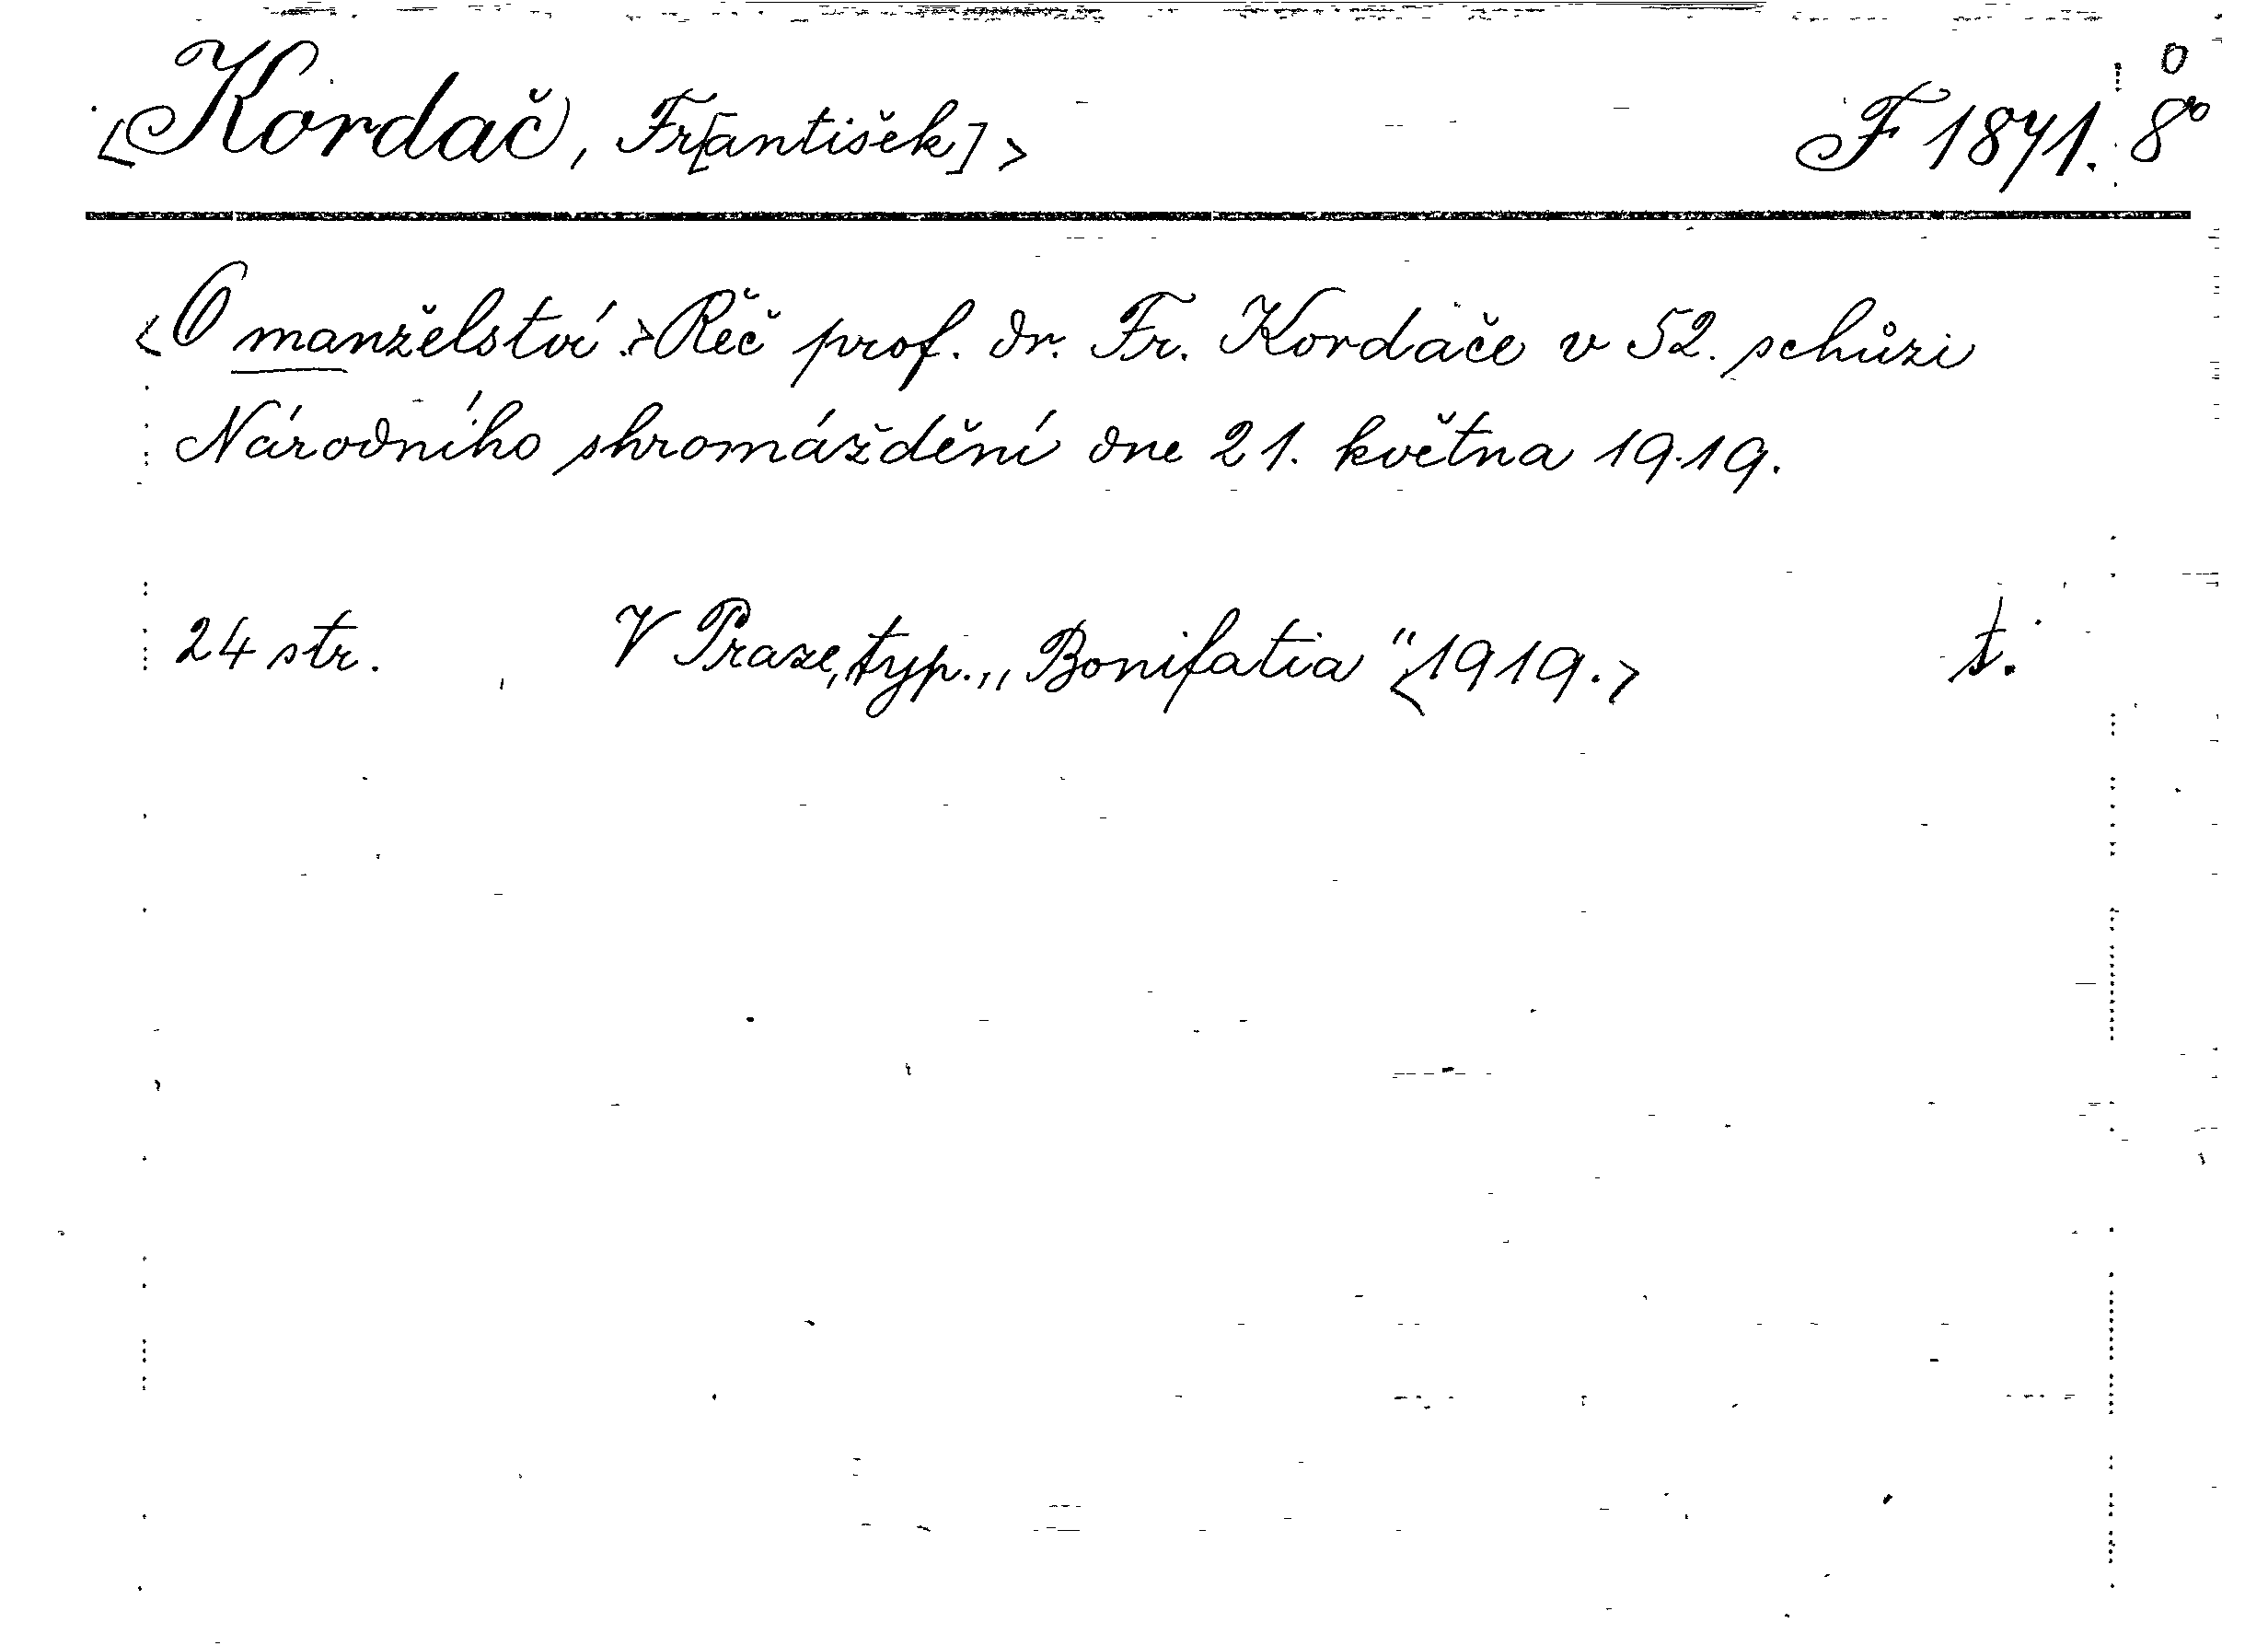 <Kordač, Fr[antišek]> F 1871. 8°
<O manželství.> Řeč prof. dr. Fr. Kordače v 52. schůzi
Národního shromáždění dne 21. května 1919.
24 str. V Praze, typ. „Bonifatia“ <1919.> t.